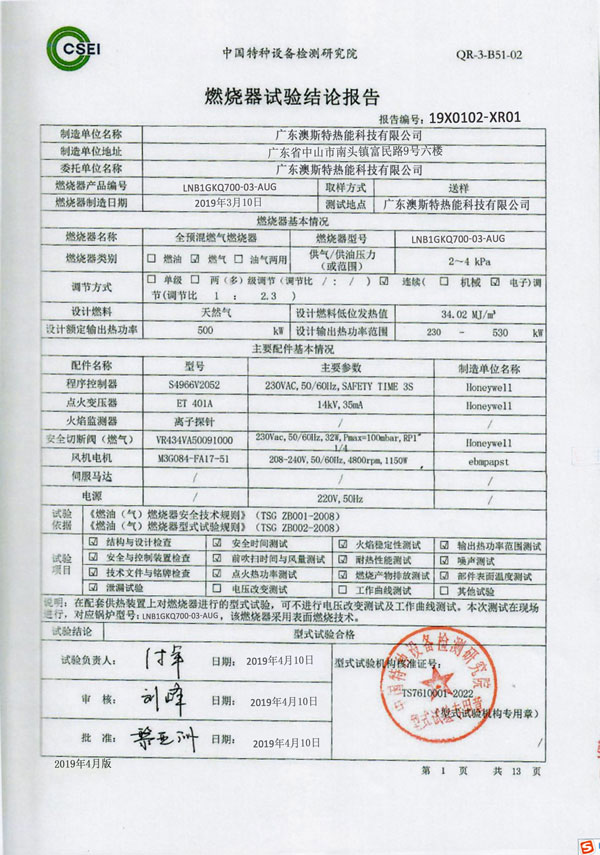 CSEI
中国特种设备检测研究院 QR-3-B51-02
燃烧器试验结论报告
报告编号：19X0102-XR01
制造单位名称 广东澳斯特热能科技有限公司
制造单位地址 广东省中山市南头镇富民路9号六楼
委托单位名称 广东澳斯特热能科技有限公司
燃烧器产品编号 LNB1GKQ700-03-AUG 取样方式 送样
燃烧器制造日期 2019年3月10日 测试地点 广东澳斯特热能科技有限公司
燃烧器基本情况
燃烧器名称 全预混燃气燃烧器 燃烧器型号 LNB1GKQ700-03-AUG
燃烧器类别 □ 燃油 ☑ 燃气 □ 油气两用 供气/供油压力（或范围） 2~4 kPa
调节方式 □ 单级 □ 两（多）级调节（调节比 / : / ） ☑ 连续（ □ 机械 ☑ 电子)调
节(调节比 1 : 2.3 )
设计燃料 天然气 设计燃料低位发热值 34.02 MJ/m³
设计额定输出热功率 500 kW 设计输出热功率范围 230 - 530 kW
主要配件基本情况
配件名称 型号 主要参数 制造单位名称
程序控制器 S4966V2052 230VAC,50/60Hz,SAFETY TIME 3S Honeywell
点火变压器 ET 401A 14kV,35mA Honeywell
火焰监测器 离子探针 / /
安全切断阀（燃气） VR434VA50091000 230Vac,50/60Hz,32W,Pmax=100mbar,RP1" 1/4 Honeywell
风机电机 M3G084-FA17-51 208-240V,50/60Hz,4800rpm,1150W ebmpapst
伺服马达 / / /
电源 / 220V,50Hz /
试验依据 《燃油（气）燃烧器安全技术规则》（TSG ZB001-2008）
《燃油（气）燃烧器型式试验规则》（TSG ZB002-2008）
试验项目 ☑ 结构与设计检查 ☑ 安全时间测试 ☑ 火焰稳定性测试 ☑ 输出热功率范围测试
☑ 安全与控制装置检查 ☑ 前吹扫时间与风量测试 ☑ 耐热性能测试 ☑ 噪声测试
☑ 技术文件与铭牌检查 ☑ 点火热功率测试 ☑ 燃烧产物排放测试 ☑ 部件表面温度测试
☑ 泄漏试验 □ 电压改变测试 □ 工作曲线测试 □ 其他试验
说明：在配套供热装置上对燃烧器进行的型式试验，可不进行电压改变测试及工作曲线测试。本次测试在现场
进行，对应锅炉型号：LNB1GKQ700-03-AUG，该燃烧器采用表面燃烧技术。
试验结论 型式试验合格
试验负责人： 日期： 2019年4月10日 型式试验机构核准证号：
TS7610001-2022
审 核： 刘峰 日期： 2019年4月10日 （型式试验机构专用章）
批 准： 黎亚洲 日期： 2019年4月10日 /
中国特种设备检测研究院
型式试验专用章
2019年4月版 第 1 页 共 13 页